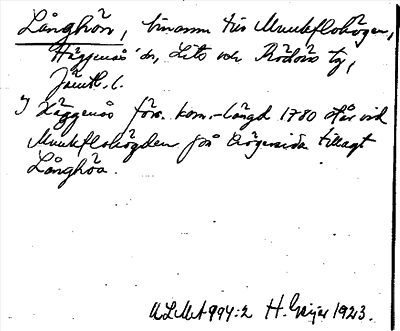 Långhön, binamn till Munkflohögen,
Häggenås sn, Lits och Rödöns tg,
Jämtl. l.
I Häggenås förs. kom.-längd 1780 står vid
Munkflohögden på högersida tillagt
Långhöa.
ULMA 994:2 H. Geijer 1923.